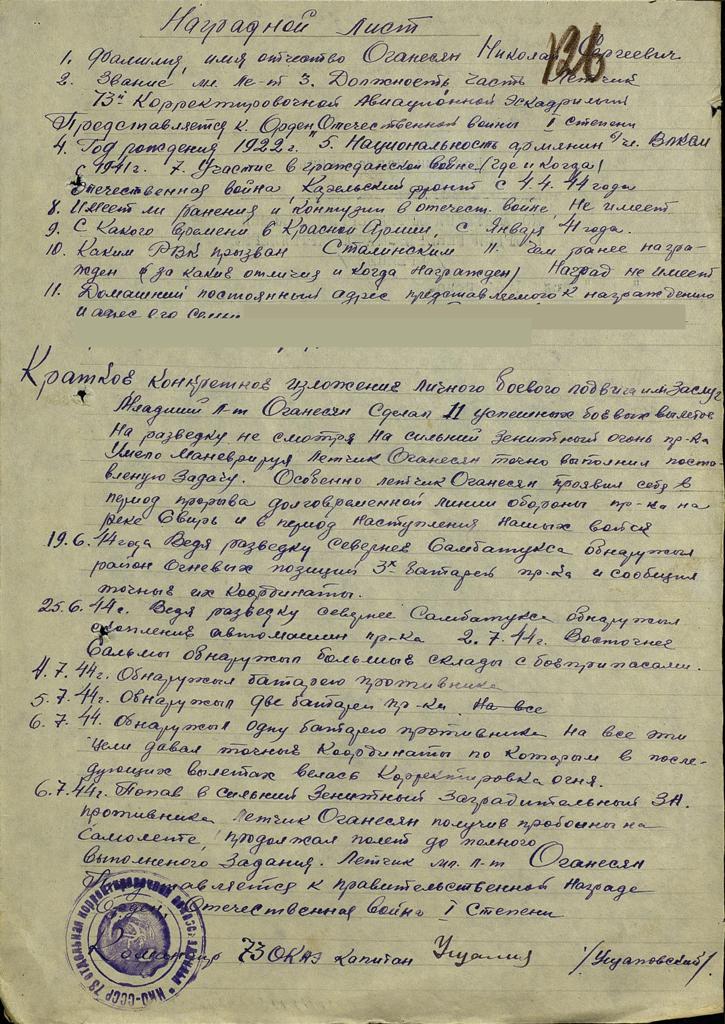 Наградной лист
126
1. Фамилия, имя отчество Оганесян Николай Сергеевич
2. Звание мл. ле-т 3. Должность, часть Летчик
73й Корректировочной Авиационной Эскадрильи
Представляется к Орден "Отечественной войны I степени
4. Год рождения 1922г. 5. Национальность армянин 6/ чл. ВЛКСМ
с 1941г. 7. Участие в гражданской войне (где и когда)
Отечественная война, Карельский фронт с 4.4.44 года
8. Имеет ли ранения и контузии в отечест. войне, Не имеет
9. С какого времени в Красной Армии, с Января 41 года.
10. Каким РВК призван Сталинским 11. Чем ранее награ-
жден (за какие отличия и когда награжден) Наград не имеет
11. Домашний постоянный адрес представляемого к награждению
и адрес его семьи
Краткое конкретное изложение личного боевого подвига или заслуг
Младший л-т Оганесян сделал 11 успешных боевых вылетов
На разведку не смотря на сильный зенитный огонь пр-ка
Умело маневрируя летчик Оганесян точно выполнил поста-
вленую задачу. Особенно летчик Оганесян проявил себя в
период прорыва долговременной линии обороны пр-ка на
реке Свирь и в период наступления наших войск
19.6.44 года Ведя разведку севернее Самбатукса обнаружыл
район огневых позиций 3х батарей пр-ка и сообщил
точные их координаты.
25.6.44г. Ведя разведку севернее Самбатукса обнаружыл
скопление автомашин пр-ка 2.7.44г. Восточнее
Сальмы обнаружыл большые склады с боеприпасами.
4.7.44г. Обнаружыл батарею противника
5.7.44г. Обнаружыл две батареи пр-ка На все
6.7.44. Обнаружыл одну батарею противника На все эти
цели давал точные координаты по которым в после-
дующих вылетах велась корректировка огня.
6.7.44г. Попав в сильный зенитный заградительный ЗА.
противника летчик Оганесян получив пробоины на
самолете, продолжал полет до полного
выполненого задания. Летчик мл. л-т Оганесян
Представляется к правительственной награде
Орден "Отечественная война I степени
Командир 73 ОКАЭ капитан /Ущаповский/
НКО-СССР 73 отдельная корректировочная авиаэскадрилья